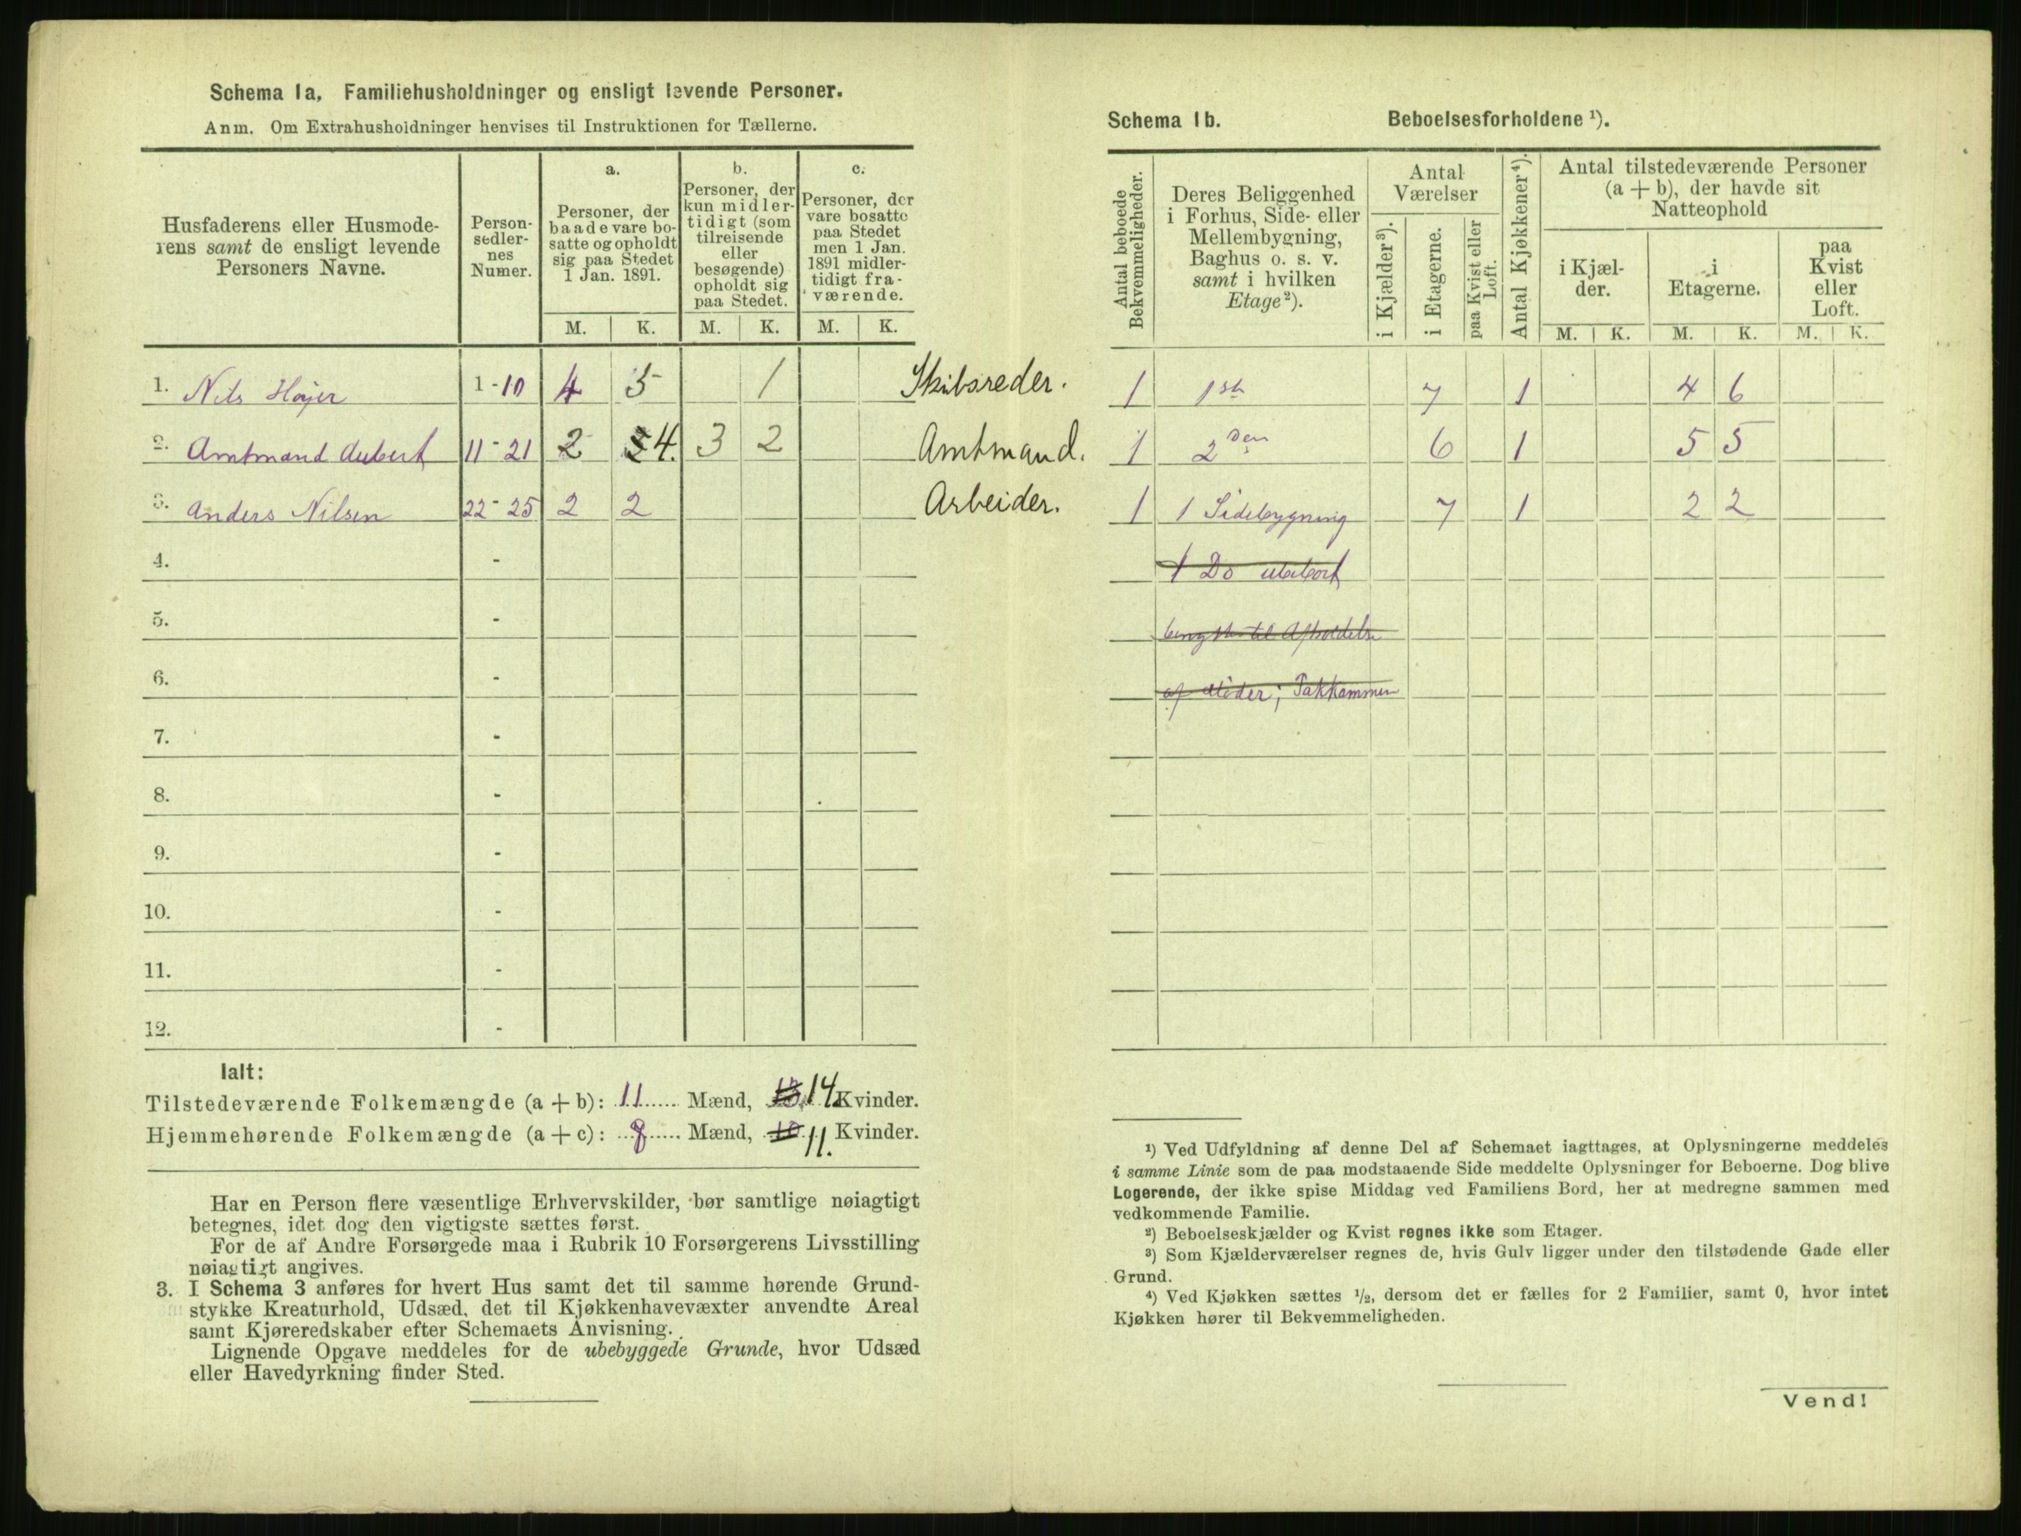 Schema Ia. Familiehusholdninger og ensligt levende Personer.
Anm. Om Extrahusholdninger henvises til Instruktionen for Tællerne.
Husfaderens eller Husmoderens samt de ensligt levende Personers Navne.
Personsedlernes Numer.
a. Personer, der baade vare bosatte og opholdt sig paa Stedet 1 Jan. 1891.
b. Personer, der kun midlertidigt (som tilreisende eller besøgende) opholdt sig paa Stedet.
c. Personer, der vare bosatte paa Stedet men 1 Jan. 1891 midlertidigt fraværende.
M. K. M. K. M. K.
1. Nils Høyer 1-10 4 5 1 Skibsreder.
2. Amtmand Aubert 11-21 2 4. 3 2 Amtmand.
3. Anders Nilsen 22-25 2 2 Arbeider.
4. -
5. -
6. -
7. -
8. -
9. -
10. -
11. -
12. -
Ialt:
Tilstedeværende Folkemængde (a + b): 11 Mænd, 13 14 Kvinder.
Hjemmehørende Folkemængde (a + c): 8 Mænd, 10 11. Kvinder.
Har en Person flere væsentlige Erhvervskilder, bør samtlige nøiagtigt
betegnes, idet dog den vigtigste sættes først.
For de af Andre Forsørgede maa i Rubrik 10 Forsørgerens Livsstilling
nøiagtigt angives.
3. I Schema 3 anføres for hvert Hus samt det til samme hørende Grund-
stykke Kreaturhold, Udsæd, det til Kjøkkenhavevæxter anvendte Areal
samt Kjøreredskaber efter Schemaets Anvisning.
Lignende Opgave meddeles for de ubebyggede Grunde, hvor Udsæd
eller Havedyrkning finder Sted.
Schema Ib. Beboelsesforholdene ¹).
Antal beboede Bekvemmeligheder.
Deres Beliggenhed i Forhus, Side- eller Mellembygning, Baghus o. s. v. samt i hvilken Etage ²).
Antal Værelser
i Kjælder ³).
i Etagerne.
paa Kvist eller Loft.
Antal Kjøkkener ⁴).
Antal tilstedeværende Personer (a + b), der havde sit Natteophold
i Kjælder.
i Etagerne.
paa Kvist eller Loft.
M. K. M. K. M. K.
1 1ste 7 1 4 6
1 2den 6 1 5 5
1 1 Sidebygning 7 1 2 2
1 Do ubeboet
til Afholdelse
af Møder; Pakkammer
¹) Ved Udfyldning af denne Del af Schemaet iagttages, at Oplysningerne meddeles
i samme Linie som de paa modstaaende Side meddelte Oplysninger for Beboerne. Dog blive
Logerende, der ikke spise Middag ved Familiens Bord, her at medregne sammen med
vedkommende Familie.
²) Beboelseskjælder og Kvist regnes ikke som Etager.
³) Som Kjælderværelser regnes de, hvis Gulv ligger under den tilstødende Gade eller
Grund.
⁴) Ved Kjøkken sættes ½, dersom det er fælles for 2 Familier, samt 0, hvor intet
Kjøkken hører til Bekvemmeligheden.
Vend!